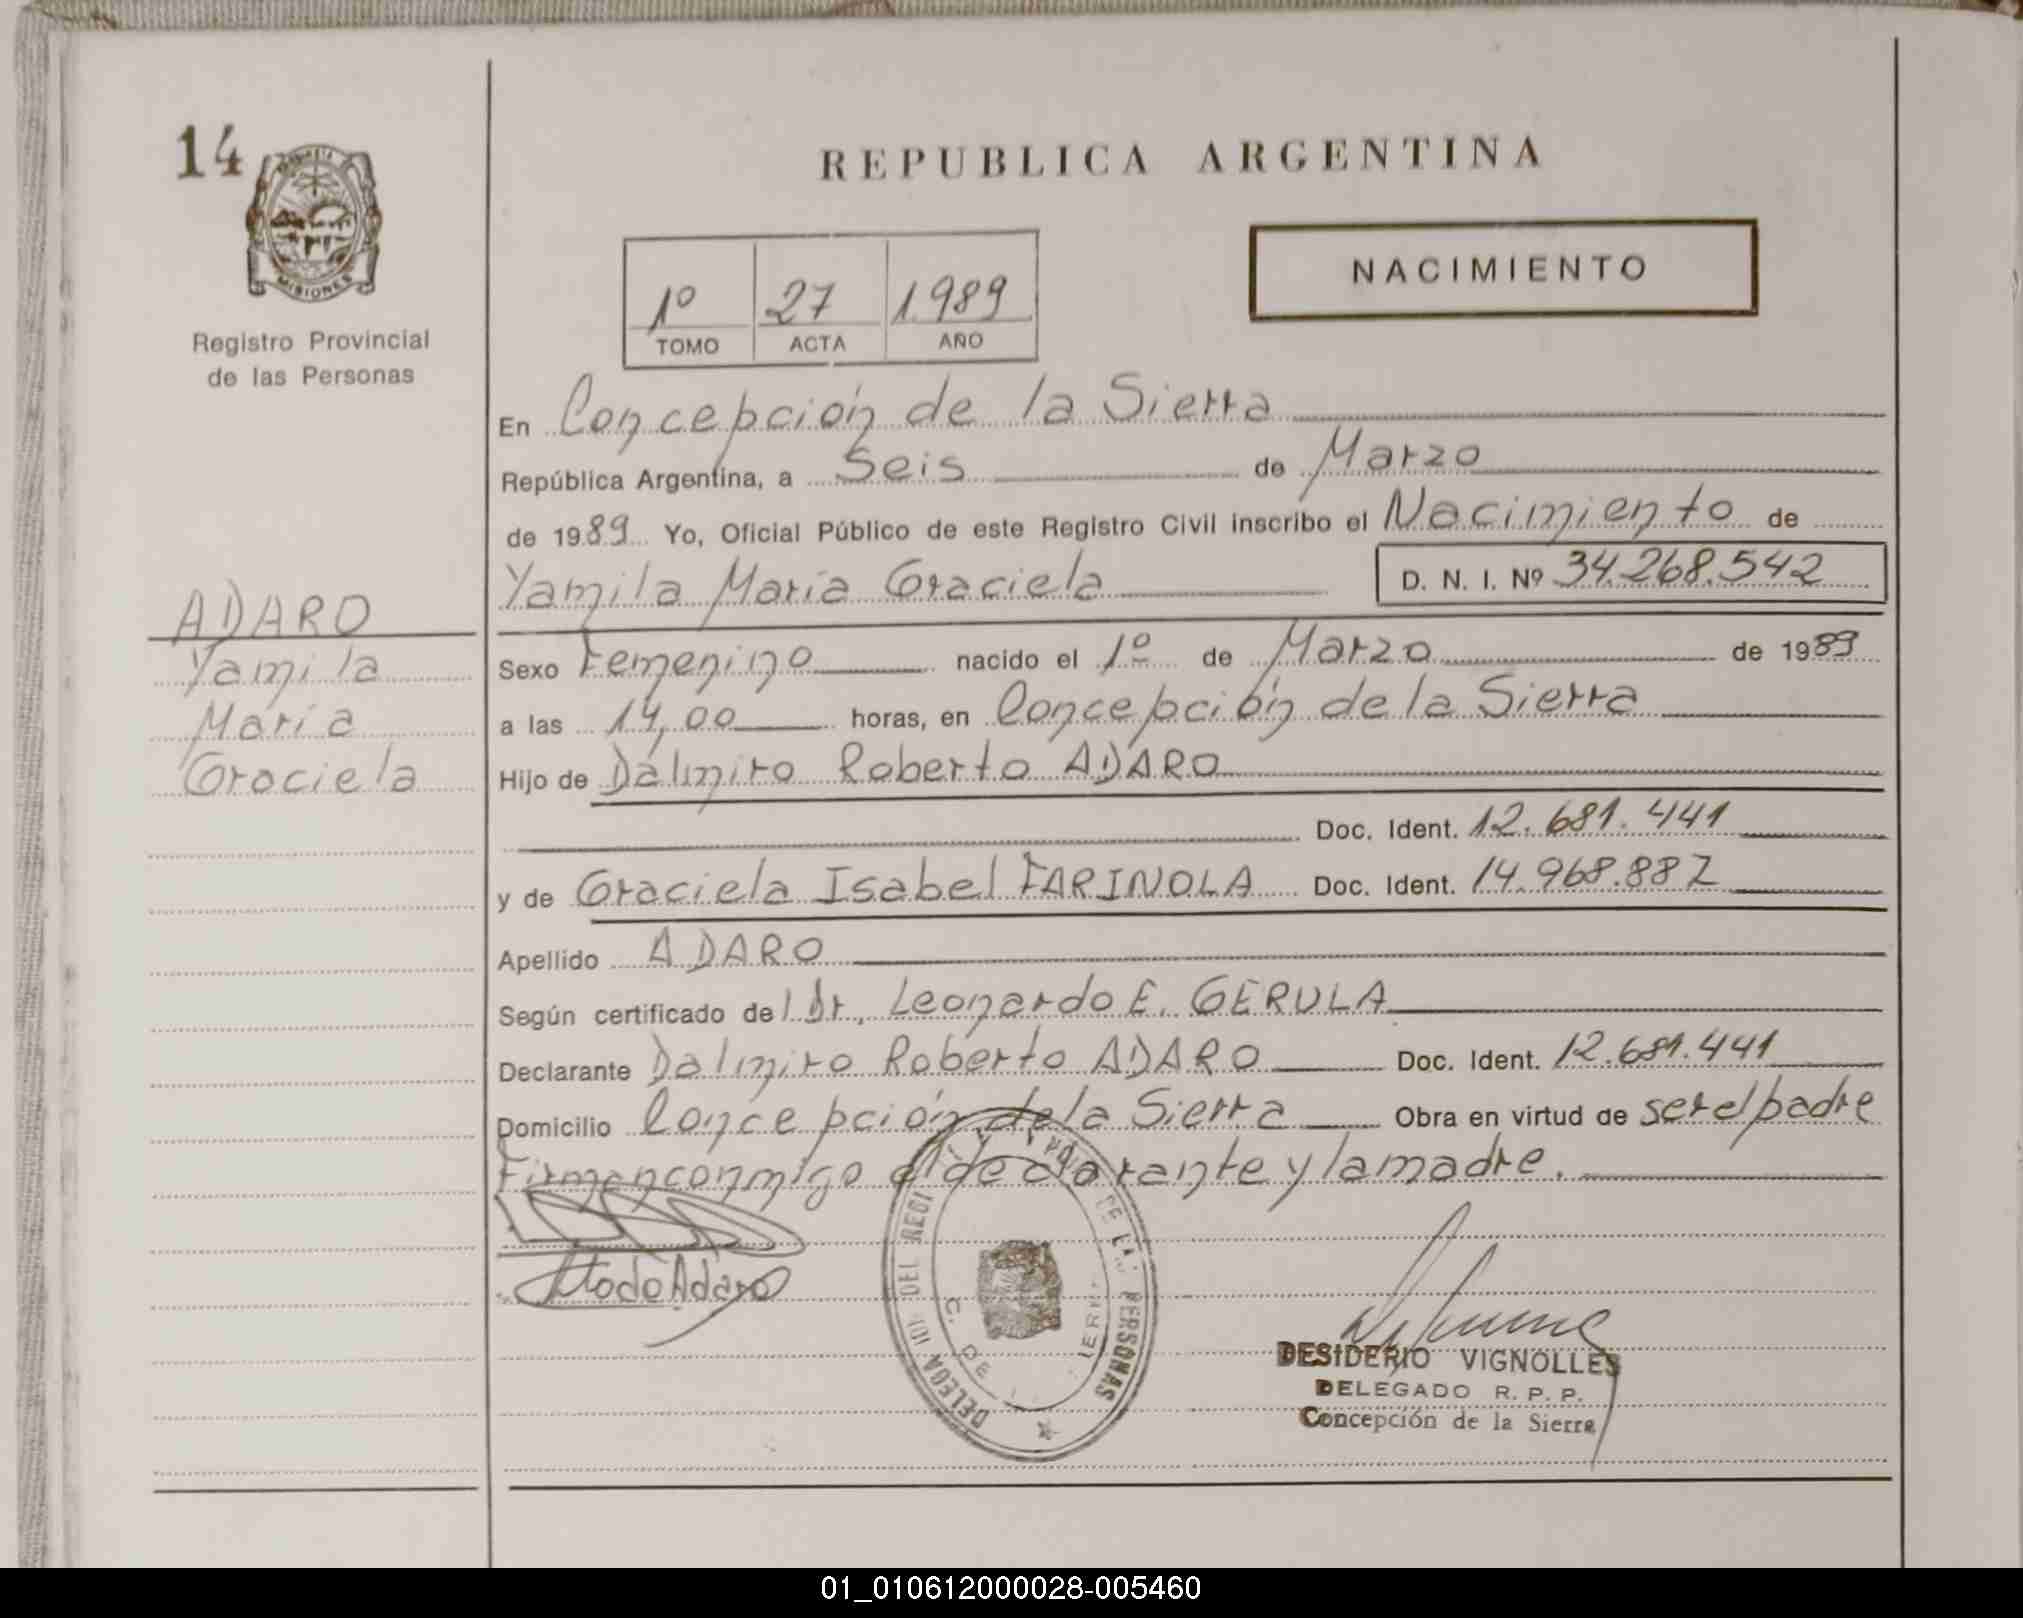 14
MISIONES
Registro Provincial
de las Personas
REPUBLICA ARGENTINA
1º 27 1989
TOMO ACTA AÑO
NACIMIENTO
En Concepción de la Sierra
República Argentina, a Seis de Marzo
de 1989 Yo, Oficial Público de este Registro Civil inscribo el Nacimiento de
Yamila María Graciela D. N. I. Nº 34.268.542
ADARO
Yamila
María
Graciela
Sexo Femenino nacido el 1º de Marzo de 1989
a las 14,00 horas, en Concepción de la Sierra
Hijo de Dalmiro Roberto ADARO
Doc. Ident. 12.681.441
y de Graciela Isabel FARINOLA Doc. Ident. 14.968.887
Apellido ADARO
Según certificado del Dr, Leonardo E. GERULA
Declarante Dalmiro Roberto ADARO Doc. Ident. 12.681.441
Domicilio Concepción de la Sierra Obra en virtud de ser el padre
Firman conmigo el declarante y la madre.
DE LAS PERSONAS
DESIDERIO VIGNOLLES
DELEGADO R. P. P.
Concepción de la Sierra
01_010612000028-005460